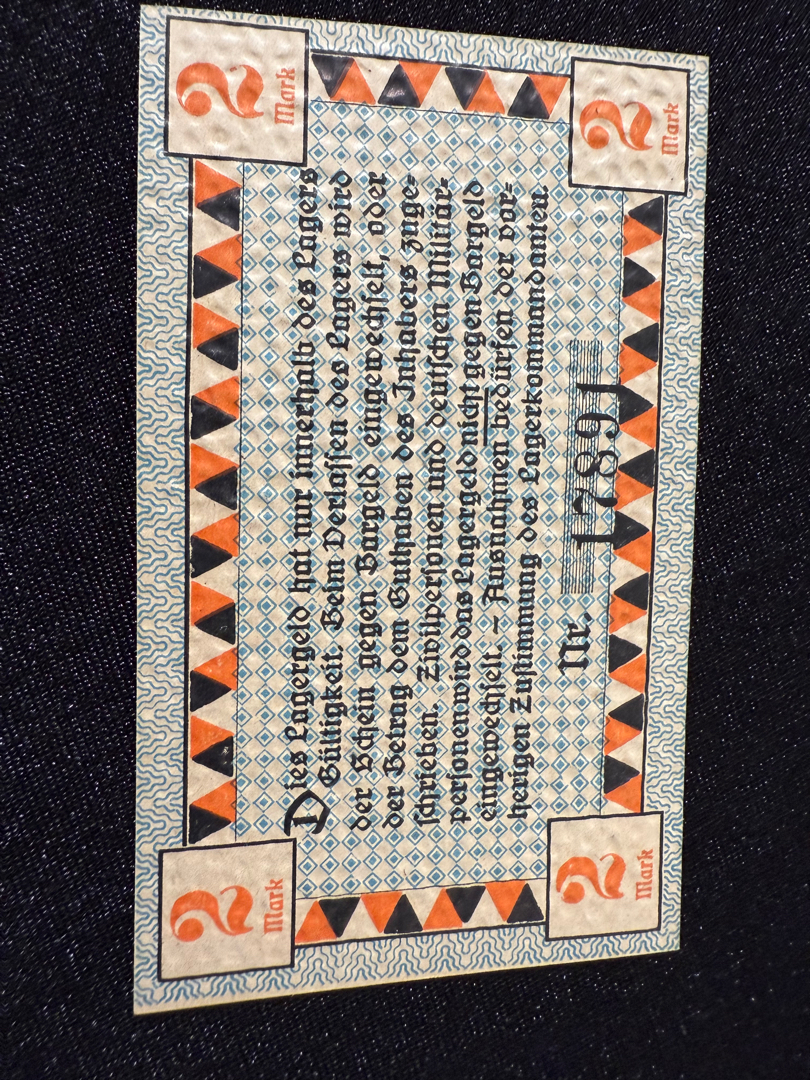 2
Mark
2
Mark
Dies Lagergeld hat nur innerhalb des Lagers
Gültigkeit. Beim Verlassen des Lagers wird
der Schein gegen Bargeld eingewechselt, oder
der Betrag dem Guthaben des Inhabers zuge-
schrieben. Zivilpersonen und deutschen Militär-
personen wird das Lagergeld nicht gegen Bargeld
eingewechselt. – Ausnahmen bedürfen der vor-
herigen Zustimmung des Lagerkommandanten
Nr. 17891
2
Mark
2
Mark